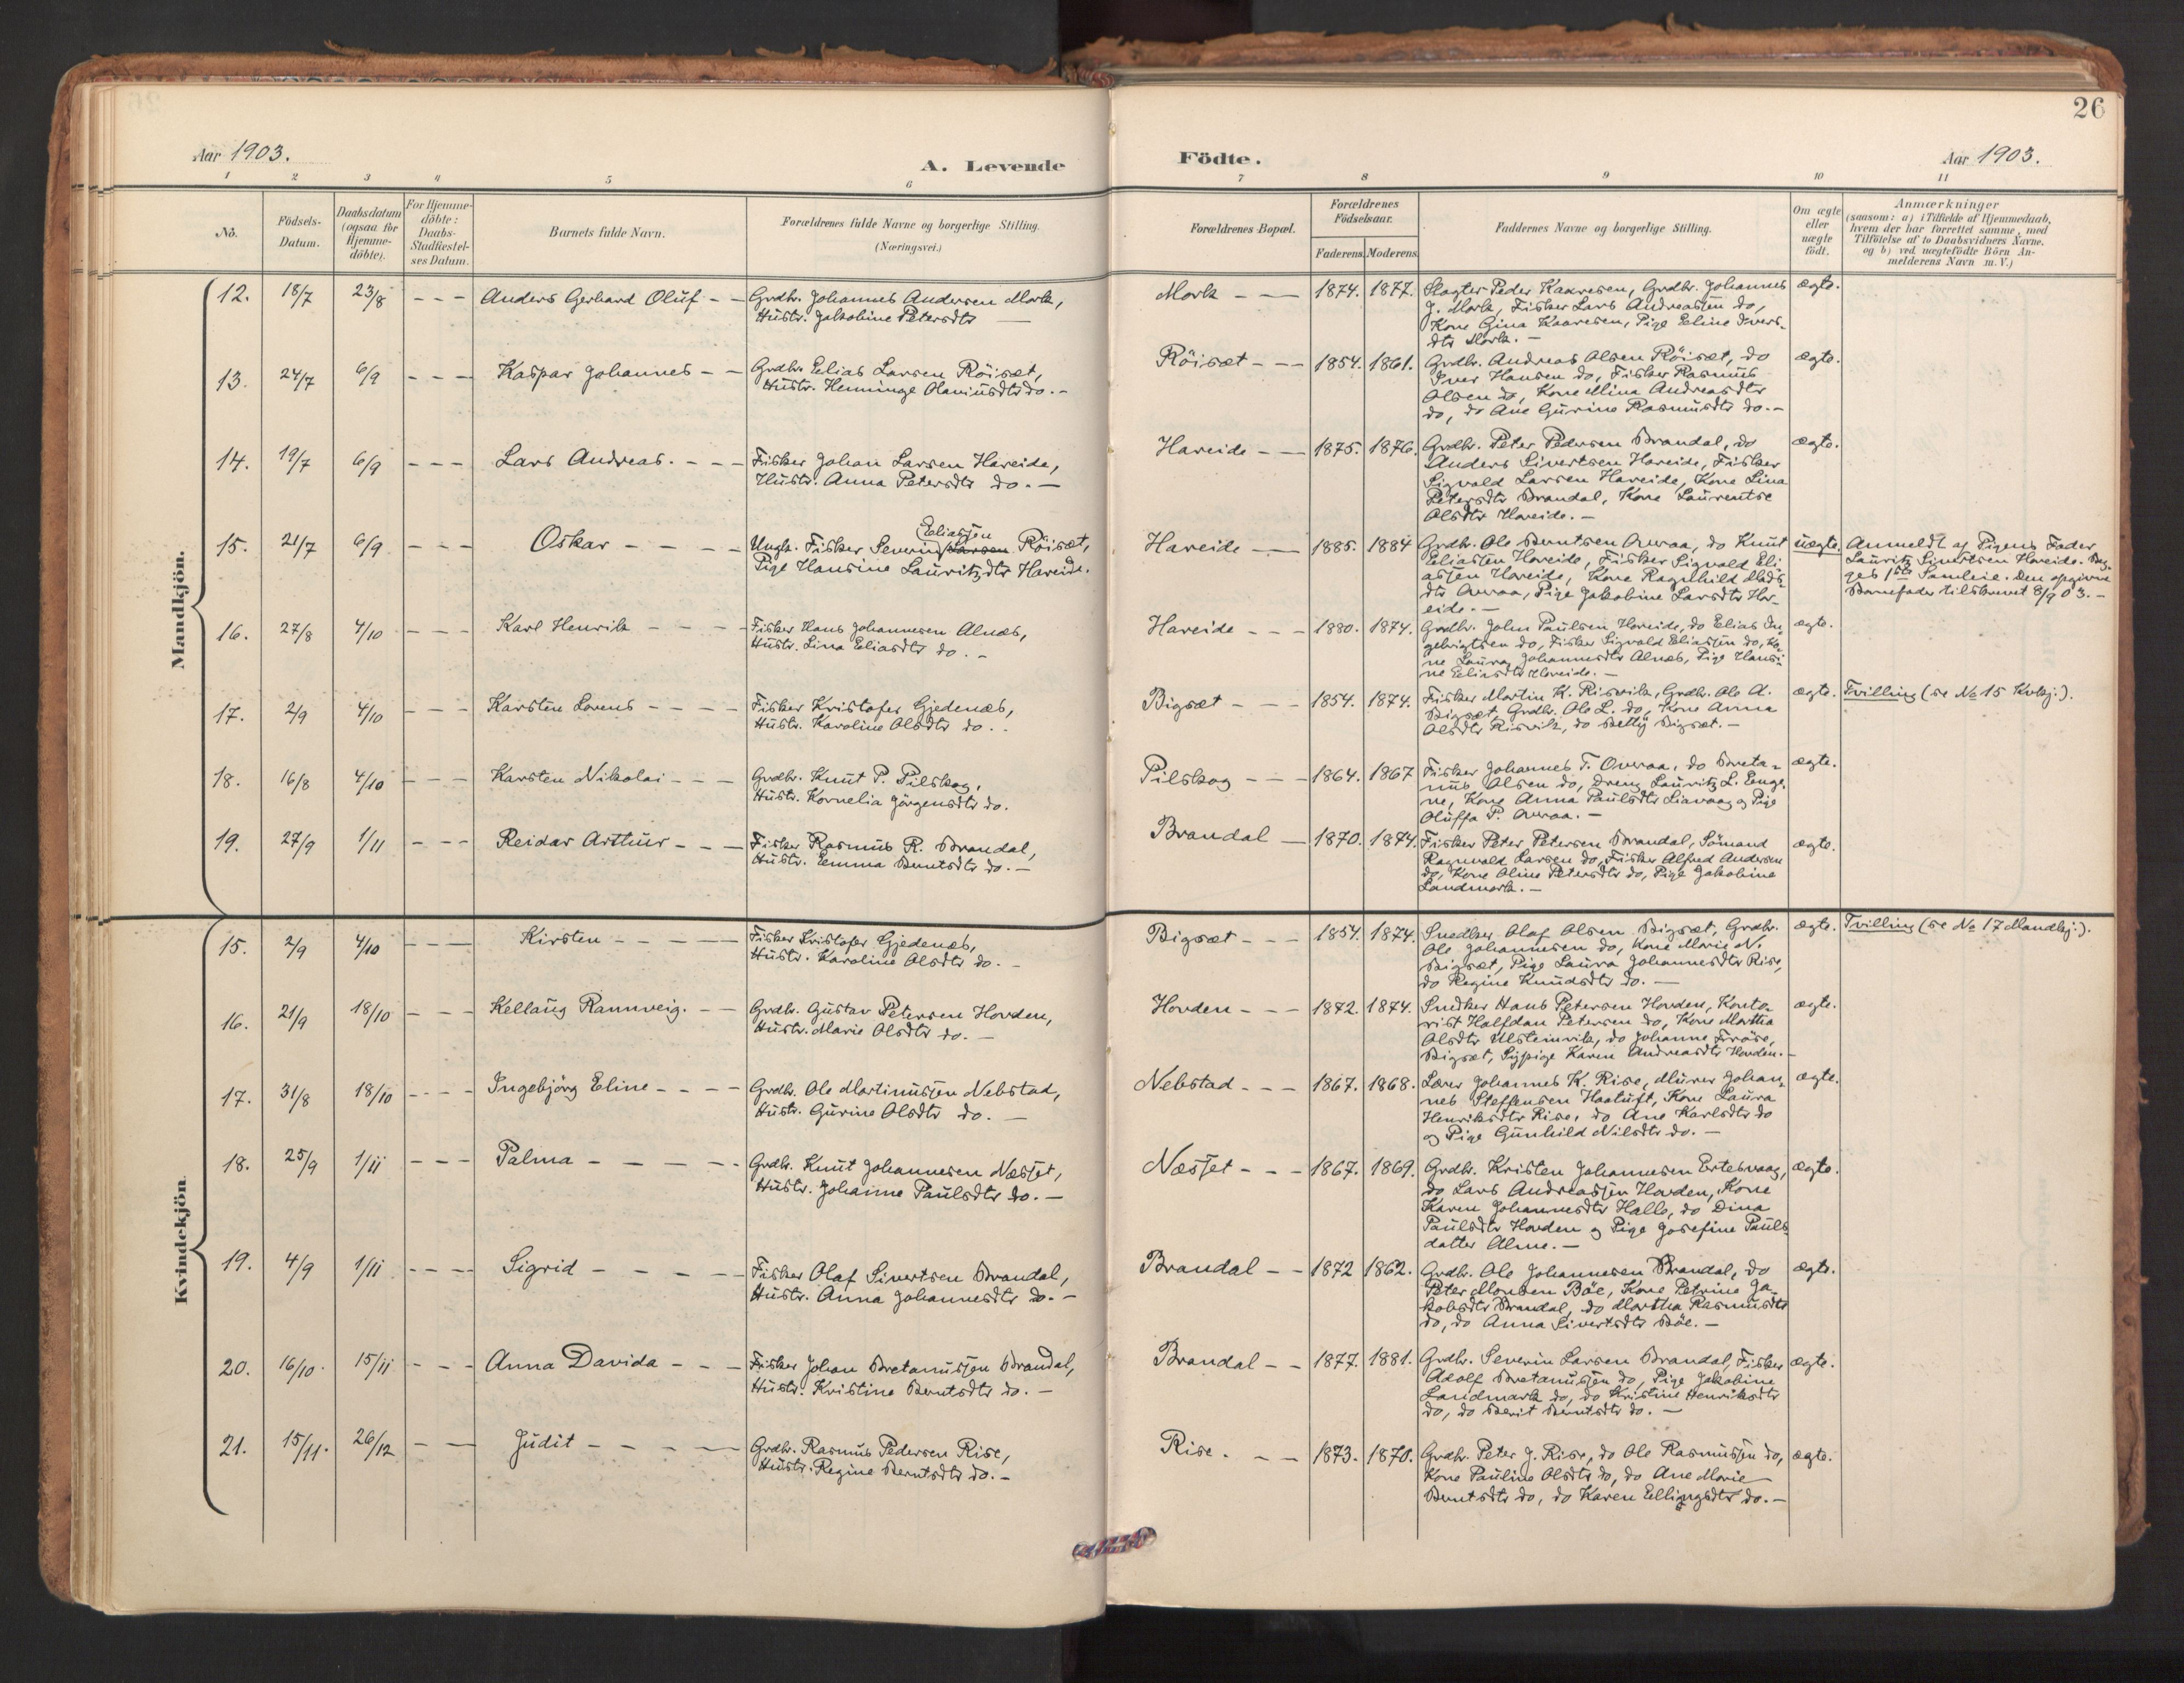 26
Aar 1903.
A. Levende
Födte.
Aar 1903.
1 2 3 4 5 6 7 8 9 10 11
No.
Födsels-Datum.
Daabsdatum (ogsaa for Hjemme-döbte).
For Hjemme-döbte: Daabs-Stadfæstel-ses Datum.
Barnets fulde Navn.
Forældrenes fulde Navne og borgerlige Stilling.
(Næringsvei.)
Forældrenes Bopæl.
Forældrenes Födselsaar.
Faderens. Moderens.
Faddernes Navne og borgerlige Stilling.
Om ægte eller uægte födt.
Anmærkninger
(saasom: a) i Tilfælde af Hjemmedaab,
hvem der har forrettet samme, med
Tilföielse af to Daabsvidners Navne.
og b) ved uægtefödte Börn An-
melderens Navn m. V.)
Mandkjön.
12. 18/7 23/8 - - - Anders Gerhard Oluf - - Grdbr. Johannes Andersen Mork,
Hustr. Jakobine Petersdtr —
Mork - — 1874. 1877. Slagter Peder Kaaresen, Grdbr. Johannes
J. Mork, Fisker Lars Andreassen do,
Kone Gina Kaaresen, Pige Eline Ivers-
dtr Mork. —
ægte.
13. 24/7 6/9 - - - Kaspar Johannes - - Grdbr. Elias Larsen Röisæt,
Hustr. Henninge Olaviusdtr do. -
Röisæt - - - 1854. 1861. Grdbr. Andreas Olsen Röisæt, do
Iver Hansen do, Fisker Rasmus
Olsen do, Kone Mina Andreasdtr
do, do Ane Gurine Rasmusdtr do. -
ægte.
14. 19/7 6/9 - - - Lars Andreas. - - - Fisker Johan Larsen Hareide,
Hustr. Anna Petersdtr do. -
Hareide - — 1875. 1876. Grdbr. Peter Pedersen Brandal, do
Anders Sivertsen Hareide, Fisker
Sigvald Larsen Hareide, Kone Lina
Petersdtr Brandal, Kone Laurentse
Olsdtr Hareide. —
ægte.
15. 21/7 6/9 - - - Oskar - - - - Ungk. Fisker Severin Eliassen Larsen Röisæt,
Pige Hansine Lauritzdtr Hareide.
Hareide - — 1885. 1884 Grdbr. Ole Berntsen Overaa, do Knut
Eliassen Hareide, Fisker Sigvald Eli-
assen Hareide, Kone Ragnhild Mads-
dtr Overaa, Pige Jakobine Larsdtr Har-
eide. —
uægte. Anmeldt af Pigens Fader
Lauritz Sivertsen Hareide. Beg-
ges 1ste Samleie. Den opgivne
Barnefader tilskrevet 8/9 03. -
16. 27/8 4/10 - - - Karl Henrik - - - - Fisker Hans Johannesen Alnæs,
Hustr. Lina Eliasdtr do. -
Hareide - - - 1880. 1874. Grdbr. John Paulsen Hareide, do Elias In-
gebrigtsen do, Fisker Sigvald Eliassen do, Ko-
ne Laura Johannesdtr Alnæs, Pige Hansi-
ne Eliasdtr Hareide. -
ægte.
17. 2/9 4/10 - - - Karsten Lorens - - - - Fisker Kristofer Gjedenæs,
Hustr. Karoline Olsdtr do. .
Bigsæt - - - 1854. 1874. Fisker Martin K. Risvik, Grdbr. Ole A.
Bigsæt, Grdbr. Ole L. do, Kone Anna
Olsdtr Risvik, do Betty Bigsæt. -
ægte. Tvilling (se No 15 Kvkj.).
18. 16/8 4/10 - - - Karsten Nikolai - - - Grdbr. Knut P. Pilskog,
Hustr. Kornelia Jörgensdtr do.
Pilskog - - - 1864. 1867 Fisker Johannes T. Overaa, do Breta-
nus Olsen do, Dreng Lauritz L. Enge-
ne, Kone Anna Paulsdtr Liavaag og Pige
Oluffa P. Overaa. -
ægte.
19. 27/9 1/11 - - - Reidar Arthur - - - Fisker Rasmus R. Brandal,
Hustr. Emma Berntsdtr do. -
Brandal - 1870. 1874. Fisker Peter Petersen Brandal, Sömand
Ragnvald Larsen do, Fisker Alfred Andersen
do, Kone Oline Petersdtr do, Pige Jakobine
Landmark. -
ægte.
Kvindekjön
15. 2/9 4/10 - - - Kirsten - - - - - Fisker Kristofer Gjedenæs,
Hustr. Karoline Olsdtr do. -
Bigsæt - - - 1854. 1874. Snedker Olaf Olsen Bigsæt, Grdbr.
Ole Johannesen do, Kone Marie N.
Bigsæt, Pige Laura Johannesdtr Rise,
do Regine Knudsdtr do. -
ægte. Tvilling (se No 17 Mandkj.).
16. 21/9 18/10 - - - Kellaug Rannveig. - - Grdbr. Gustav Petersen Hovden,
Hustr. Marie Olsdtr do. -
Hovden - - - 1872. 1874. Snedker Hans Petersen Hovden, Konto-
rist Halfdan Petersen do, Kone Martha
Olsdtr Ulsteinvik, do Johanne
Bigsæt, Sypige Karen Andreasdtr Hovden. -
ægte.
17. 31/8 18/10 - - - Ingebjörg Eline - - - - Grdbr. Ole Martinussen Nebstad,
Hustr. Gurine Olsdtr do. -
Nebstad - - - 1867. 1868. Lærer Johannes K. Rise, Murer Johan-
nes Steffensen Haatuft, Kone Laura
Henriksdtr Rise, do Ane Karlsdtr do
og Pige Gunhild Nilsdtr do. -
ægte.
18. 25/9 1/11 - - - Palma - - - - - Grdbr. Knut Johannesen Næsset,
Hustr. Johanne Paulsdtr do. -
Næsset - - - 1867. 1869. Grdbr. Kristen Johannesen Ertesvaag,
do Lars Andreassen Hovden, Kone
Karen Johannesdtr Halle, do Dina
Paulsdtr Hovden og Pige Josefine Pauls-
datter Alme. -
ægte.
19. 4/9 1/11 - - - Sigrid - - - - - Fisker Olaf Sivertsen Brandal,
Hustr. Anna Johannesdtr do. -
Brandal - - 1872 1862. Grdbr. Ole Johannesen Brandal, do
Peter Monsen Böe, Kone Petrine Ja-
kobsdtr Brandal, do Martha Rasmusdtr
do, do Anna Sivertsdtr Böe. -
ægte.
20. 16/10. 15/11 - - - Anna Davida - - - Fisker Johan Bretanussen Brandal,
Hustr. Kristine Berntsdtr do. -
Brandal - - 1877. 1881. Grdbr. Severin Larsen Brandal, Fisker
Adolf Bretanussen do, Pige Jakobine
Landmark do, do Kristine Henriksdtr
do, do Berit Berntsdtr do. -
ægte.
21. 15/11. 26/12 - - Judit - - - - - Grdbr. Rasmus Pedersen Rise,
Hustr. Regine Berntsdtr do. -
Rise. - - 1873. 1870. Grdbr. Peter J. Rise, do Ole Rasmussen do,
Kone Pauline Olsdtr do, do Ane Marie
Berntsdtr do, do Karen Ellingsdtr do. -
ægte.